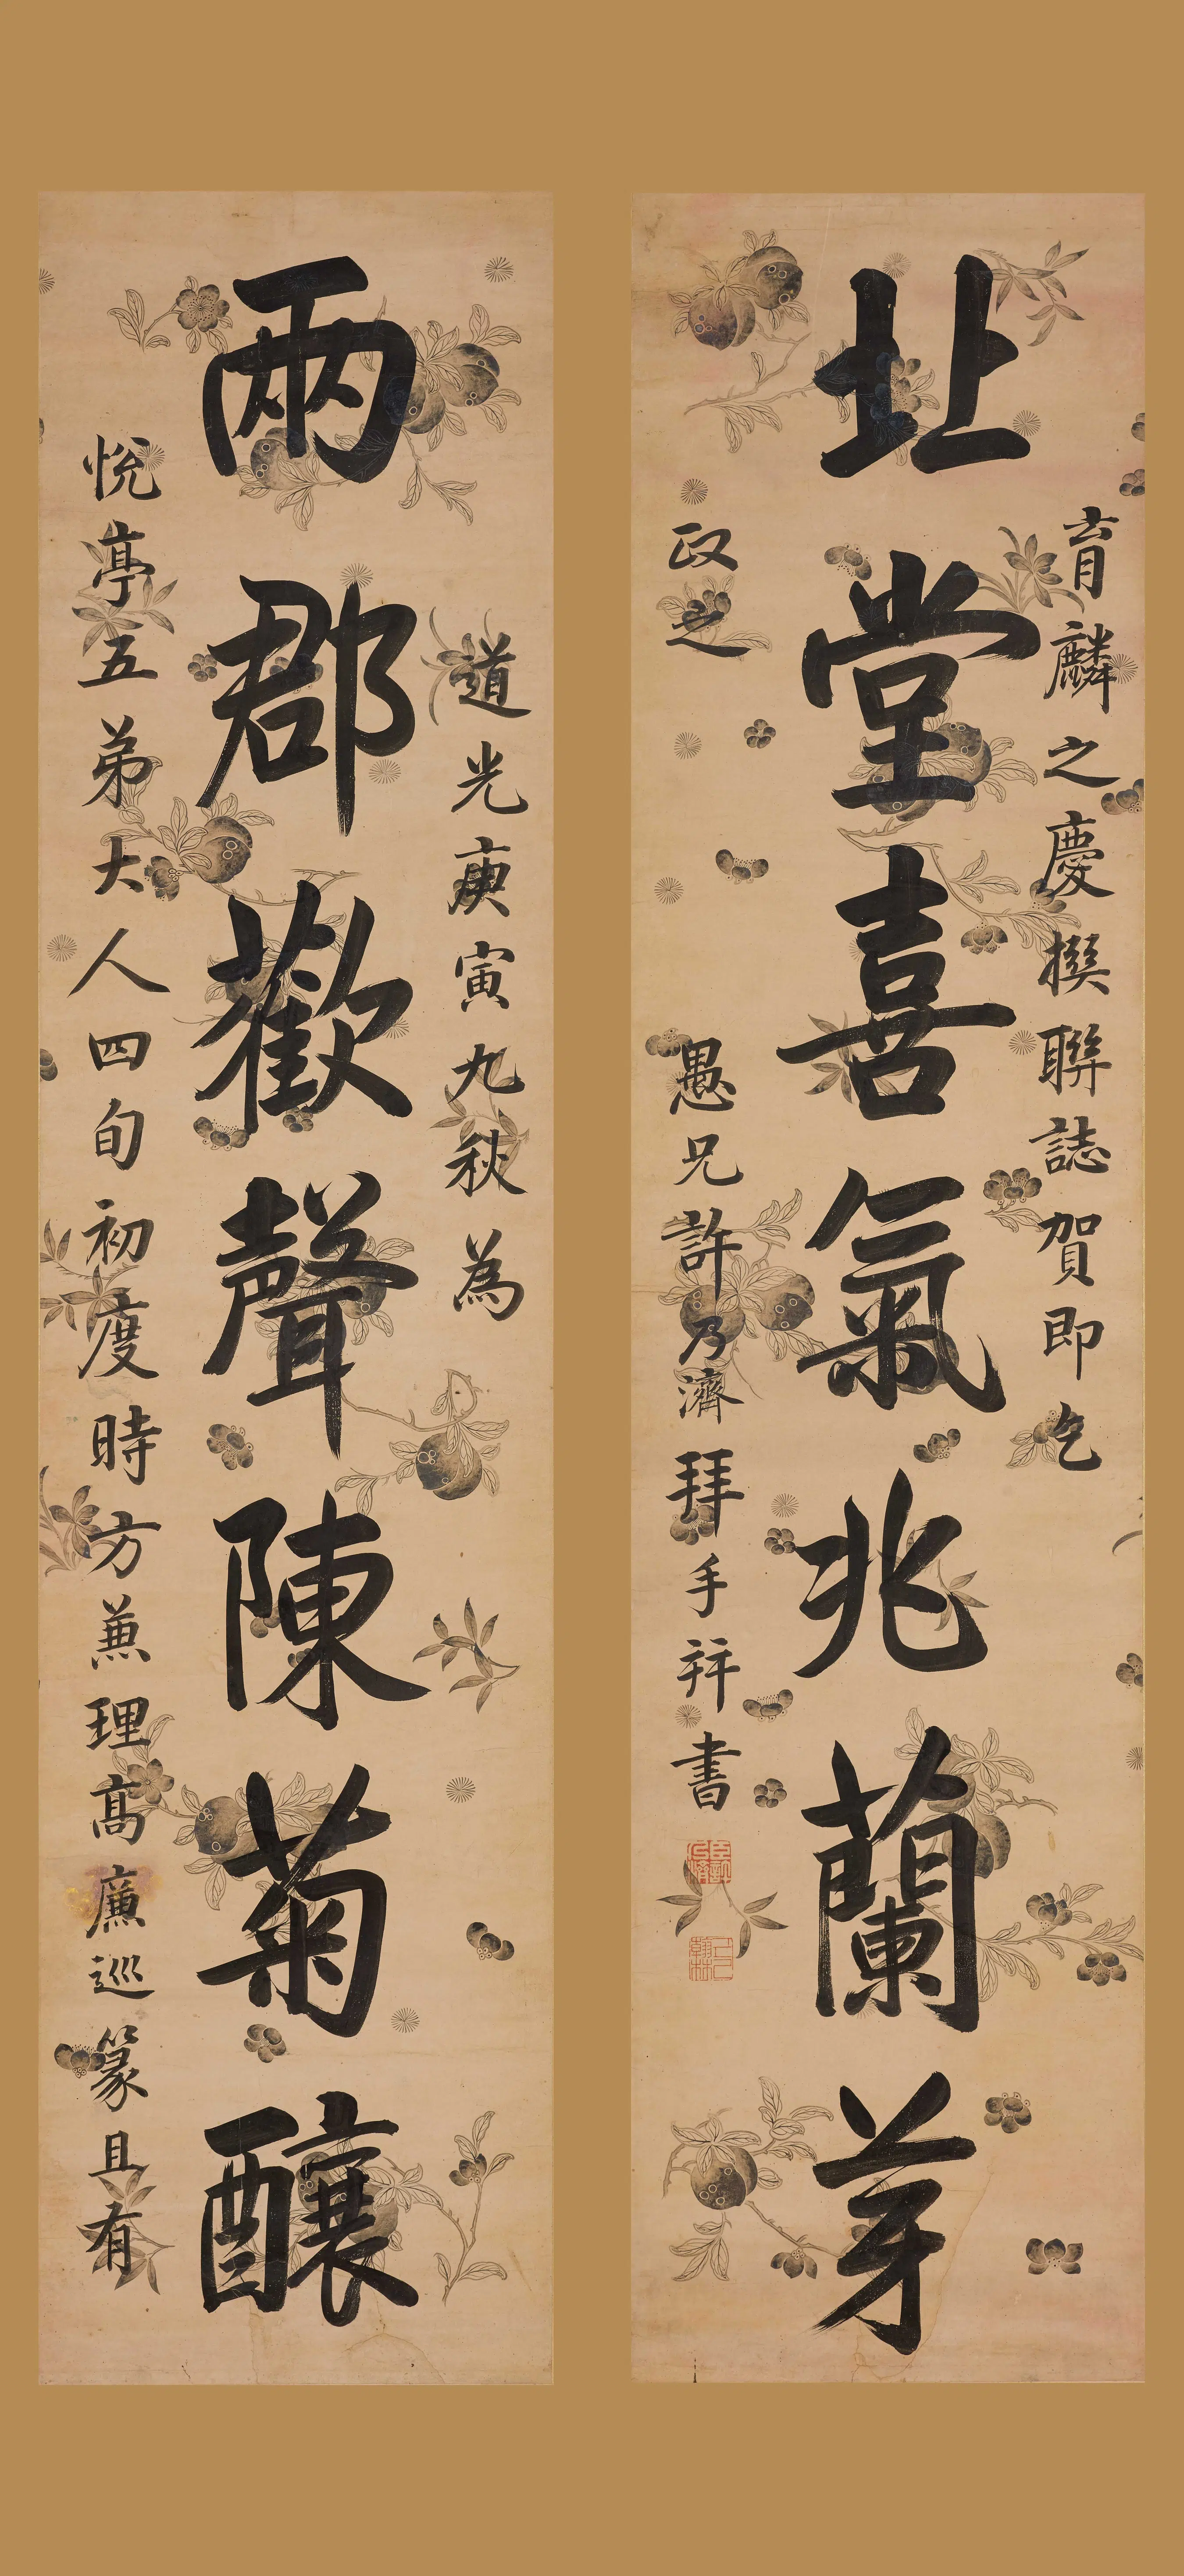 道光庚寅九秋為
兩郡歡聲陳菊釀
悅亭五弟大人四旬初度時方兼理高廉巡篆且有
育麟之慶撰聯誌賀即乞
北堂喜氣兆蘭芽
政之
愚兄許乃濟拜手并書
臣許乃濟
己巳翰林